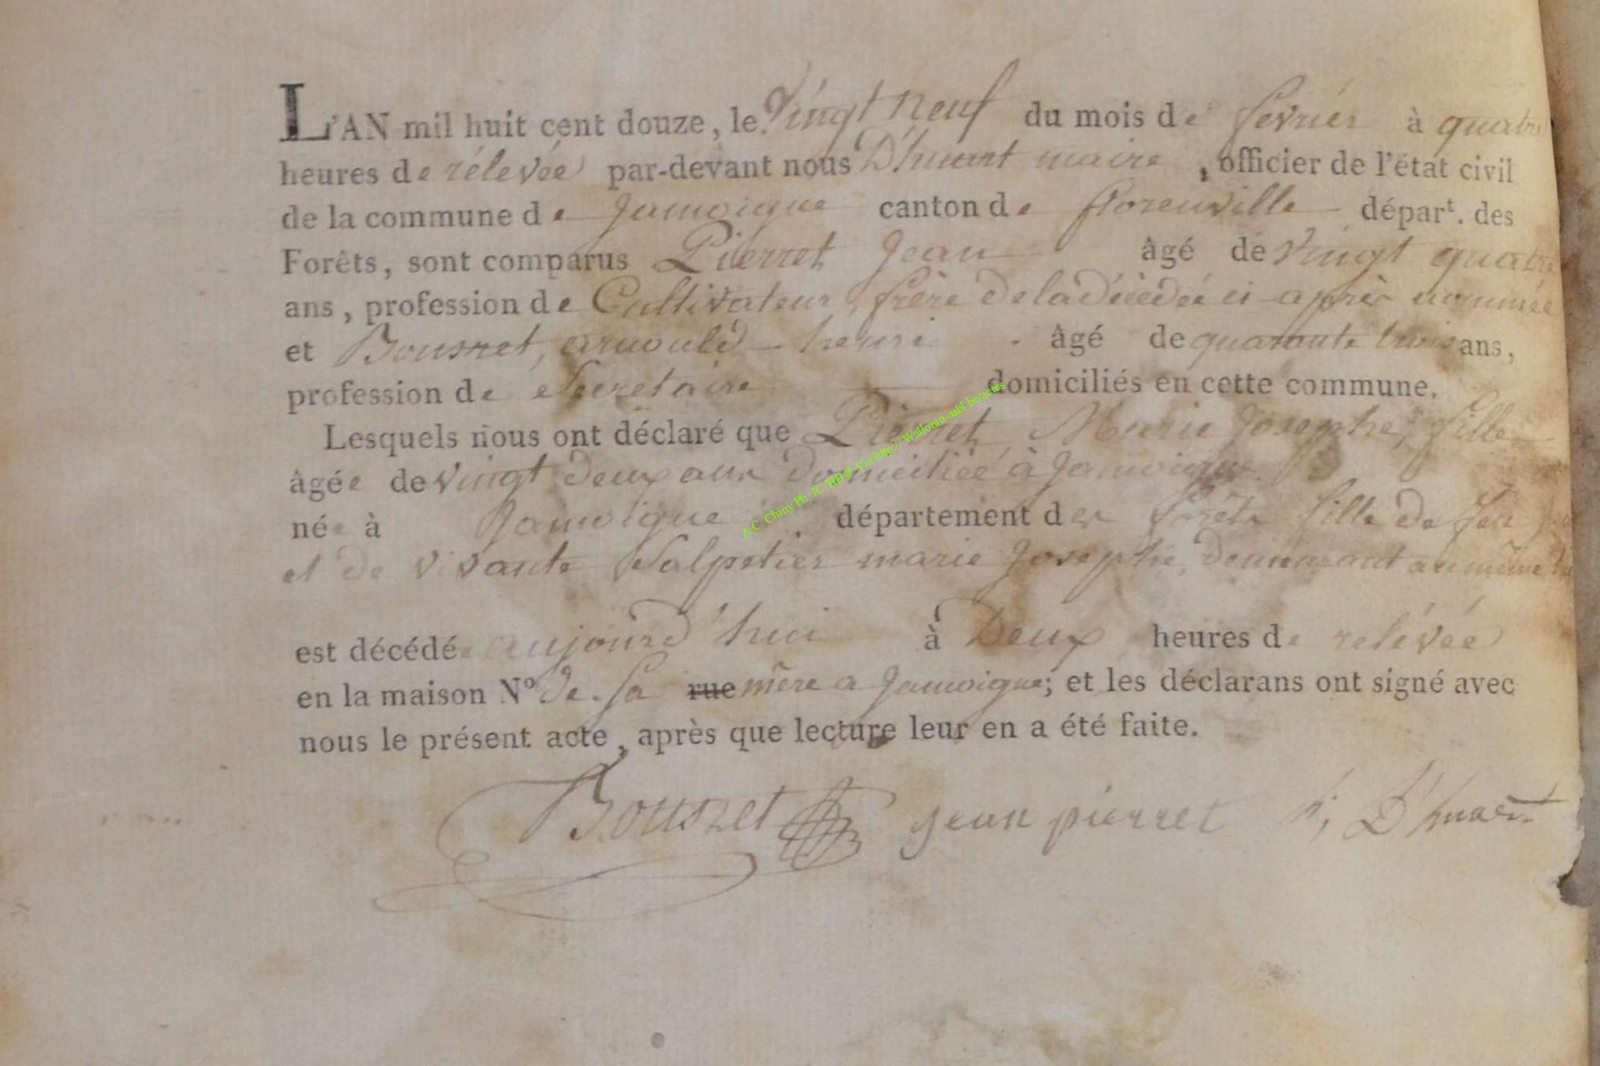 L'AN mil huit cent douze, le Vingt neuf du mois de février à quatre
heures de rélevée par-devant nous D'huart maire, officier de l'état civil
de la commune de Jamoigne canton de florenville départ. des
Forêts, sont comparus Pierret Jean âgé de Vingt quatre
ans, profession de Cultivateur, frère de la décédée ci-après nommée
et Bousret, arnould henri âgé de quarante trois ans,
profession de Secretaire domiciliés en cette commune.
Lesquels nous ont déclaré que Pierret, Marie Josephe, fille
âgée de Vingt deux ans domiciliée à Jamoigne
née à Jamoigne département des forêts fille de feu
et de vivante Salpetier marie Josephe, demeurant au même
est décédée aujourd'hui à Deux heures de relévée
en la maison N° de sa rue mère a Jamoigne; et les déclarans ont signé avec
nous le présent acte, après que lecture leur en a été faite.
Bousret jean pierret D'huart